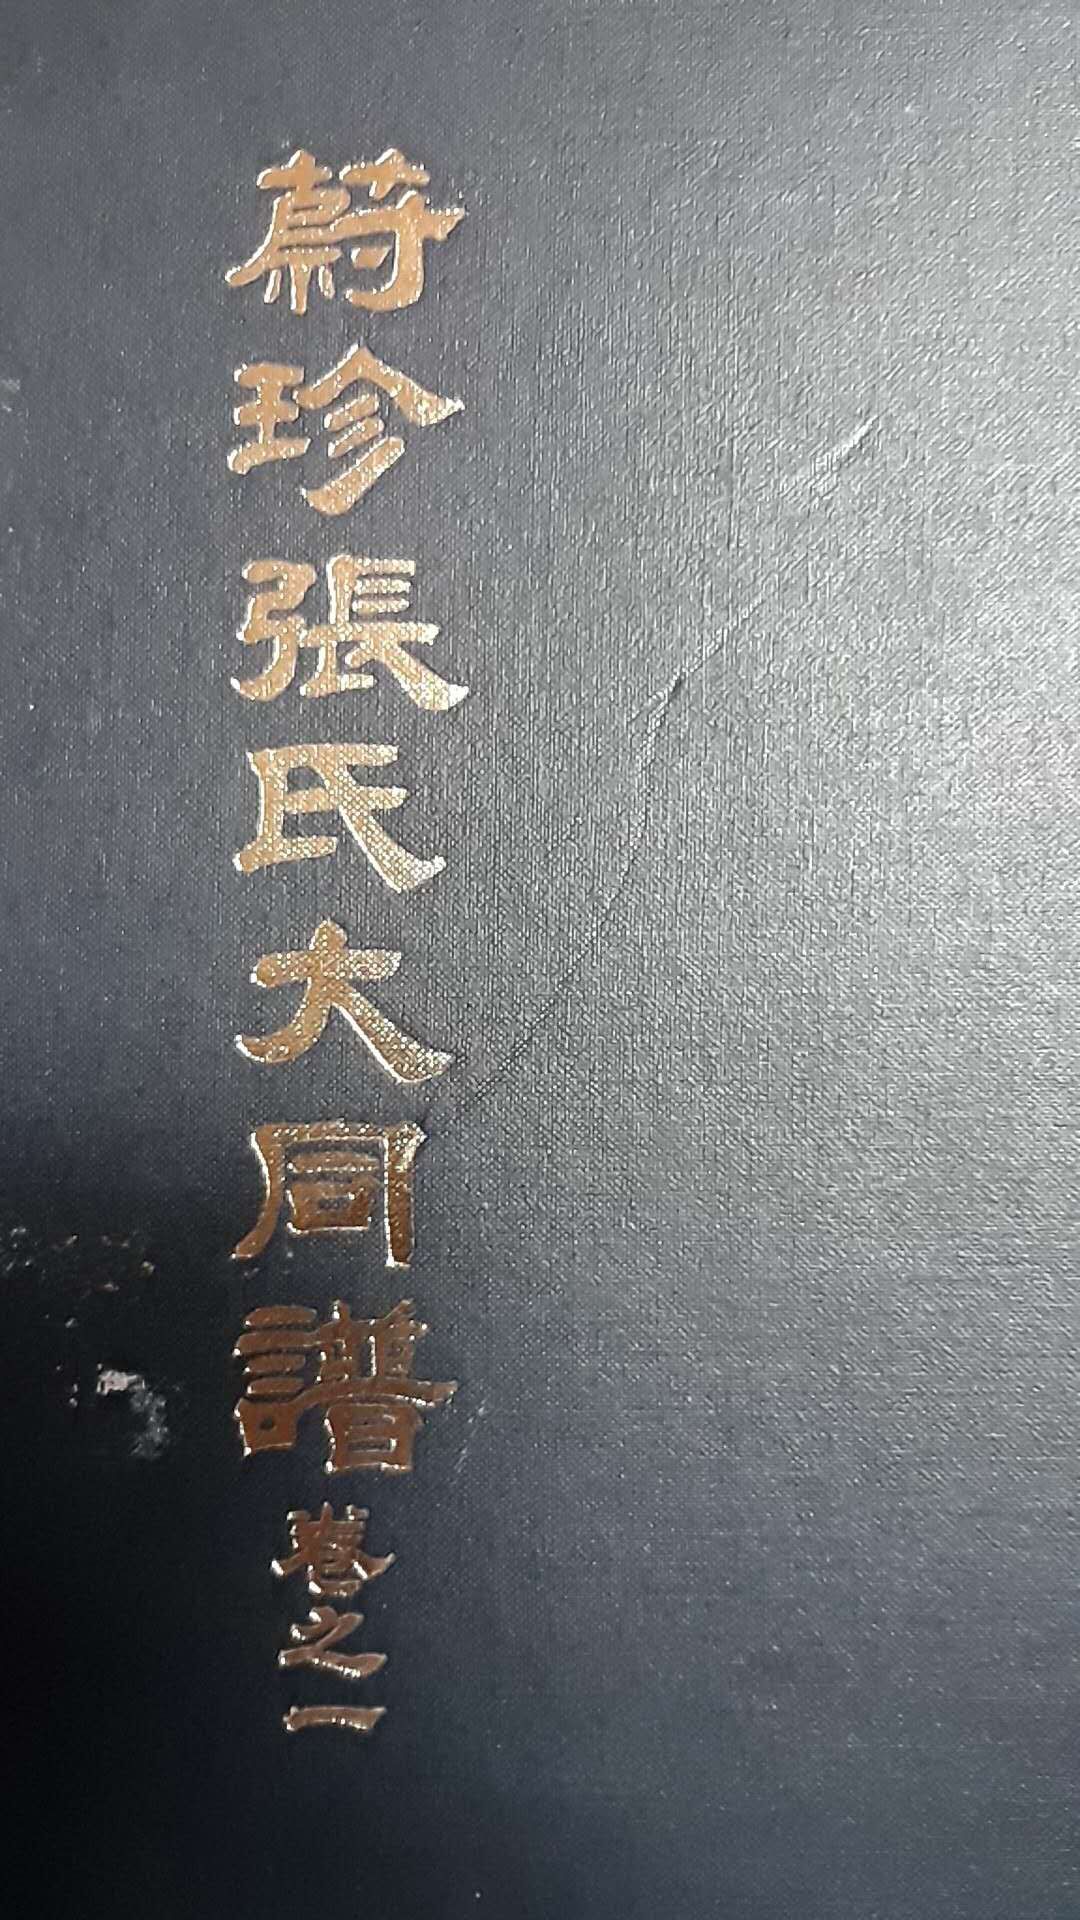 蔚珍張氏大同譜卷之一